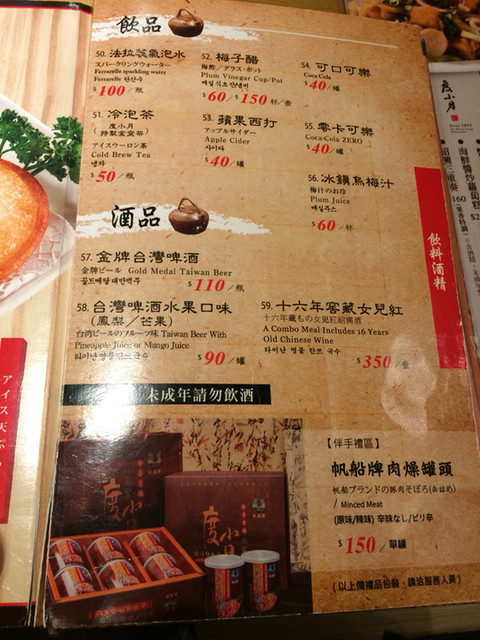 飲品
50. 法拉蕊氣泡水
スパークリングウォーター
Ferrarelle sparkling water
Ferrarelle 탄산수
$100/瓶
51. 冷泡茶
(度小月特製金萱茶)
アイスウーロン茶
Cold Brew Tea
냉차
$50/瓶
52. 梅子醋
梅酢/グラス・ポット
Plum Vinegar Cup/Pot
매실식초잔냄비
$60/$150 杯/壺
53. 蘋果西打
アップルサイダー
Apple Cider
사이다
$40/罐
54. 可口可樂
Coca Cola
$40/罐
55. 零卡可樂
Coca-Cola ZERO
$40/罐
56. 冰鎮烏梅汁
梅汁のお冷
Plum Juice
매실주스
$60/杯
酒品
57. 金牌台灣啤酒
金牌ビール Gold Medal Taiwan Beer
골드메달대만맥주
$110/瓶
58. 台灣啤酒水果口味
(鳳梨/芒果)
台湾ビールのフルーツ味 Taiwan Beer With
Pineapple Juice or Mango Juice
타이난 명물 탄쯔 국수
$90/罐
59. 十六年窖藏女兒紅
十六年蔵もの女兒紅紹興酒
A Combo Meal Includes 16 Years
Old Chinese Wine
타이난 명물 탄쯔 국수
$350/壺
未成年請勿飲酒
飲料酒精
【伴手禮區】
帆船牌肉燥罐頭
帆船ブランドの豚肉そぼろ(缶詰め)
/ Minced Meat
(原味/辣味) 辛味なし/ピリ辛
$150/單罐
(以上備禮品包裝,請洽服務人員)
度小月
度小月
アイス天ぷら
度小月
Since 1895
160